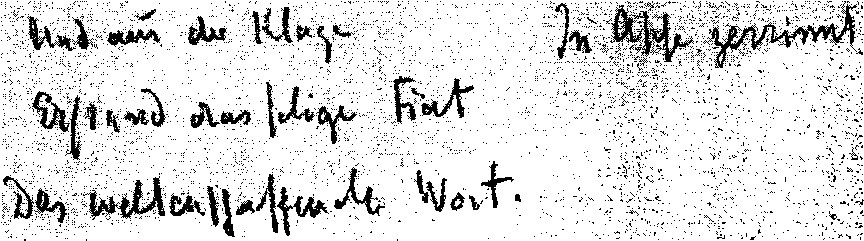 Und aus der Klage
Erstand das selige Fiat
Das weltenschaffende Wort.
In Asche zerrinnt